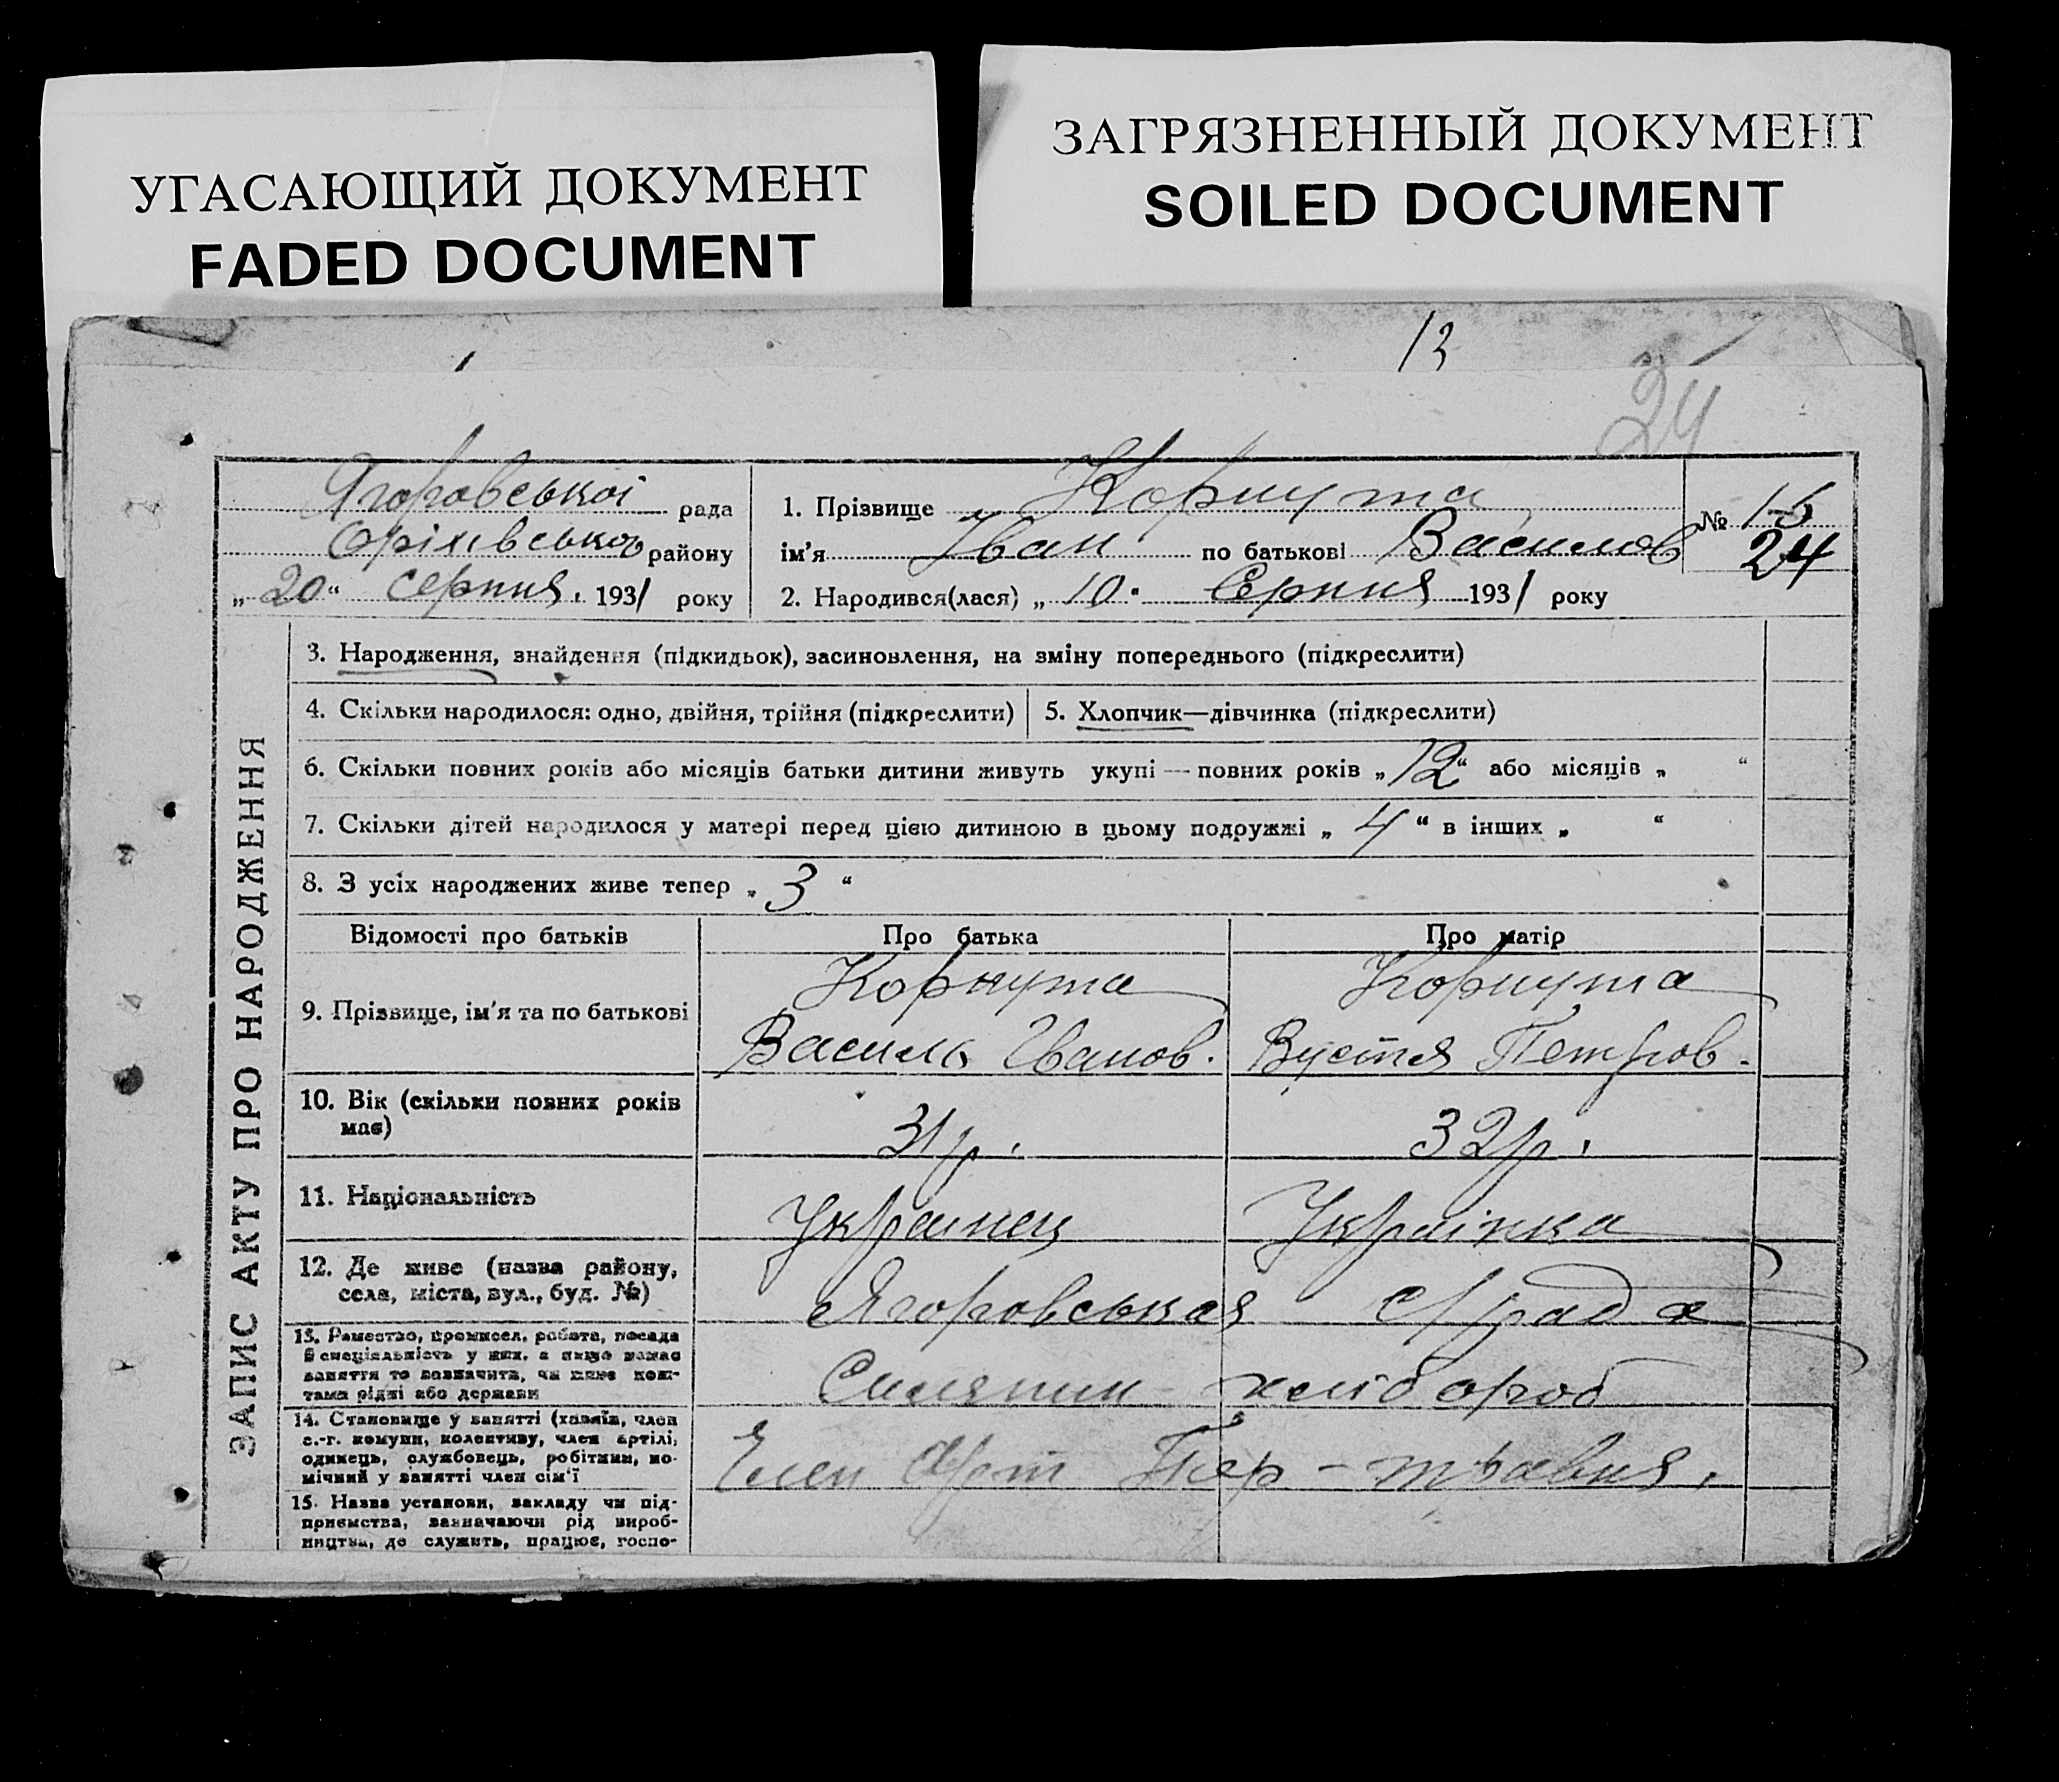 УГАСАЮЩИЙ ДОКУМЕНТ
FADED DOCUMENT
ЗАГРЯЗНЕННЫЙ ДОКУМЕНТ
SOILED DOCUMENT
13
24
Ягоровської рада
Оріхівського району
„20“ серпня. 1931 року
1. Прізвище Корнута
ім'я Іван по батькові Василов
2. Народився(лася) „10“ Серпня 1931 року
№ 15
24
ЗАПИС АКТУ ПРО НАРОДЖЕННЯ
3. Народження, знайдення (підкидьок), засиновлення, на зміну попереднього (підкреслити)
4. Скільки народилося: одно, двійня, трійня (підкреслити)
5. Хлопчик—дівчинка (підкреслити)
6. Скільки повних років або місяців батьки дитини живуть укупі — повних років „12“ або місяців „ “
7. Скільки дітей народилося у матері перед цією дитиною в цьому подружжі „4“ в інших „ “
8. З усіх народжених живе тепер „3“
Відомості про батьків Про батька Про матір
9. Прізвище, ім'я та по батькові
Корнута
Василь Іванов.
Корнута
Вустя Петров.
10. Вік (скільки повних років
має)
31 р.
32 р.
11. Національність
Українец
Українка
12. Де живе (назва району,
села, міста, вул., буд. №)
Ягоровська с/рада
13. Ремество, промисел, робота, посада
й спеціяльність у них, а якщо немає
заняття то зазначити, чи живе кош-
тами рідні або держави
Селяни - хлібороб
14. Становище у занятті (хазяїн, член
с.-г. комуни, колективу, член артілі,
одинець, службовець, робітник, по-
мічний у занятті член сім'ї
Член Арт Пер - травня.
15. Назва установи, закладу чи під-
приємства, зазначаючи рід вироб-
ництва, де служить, працює, госпо-